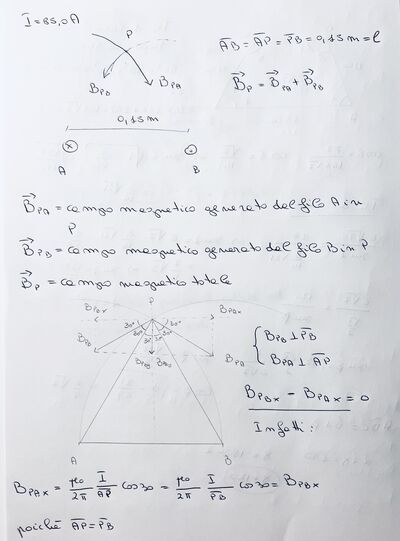 I = 85,0 A
P
B_PB
B_PA
0,15 m
A
B
AB = AP = PB = 0,15 m = l
B_P = B_PA + B_PB
B_PA = campo magnetico generato dal filo A in
P
B_PB = campo magnetico generato dal filo B in P
B_P = campo magnetico totale
P
B_PBx
B_PAx
30°
30°
B_PB
B_PA
A
B
B_PB ⊥ PB
B_PA ⊥ AP
B_PBx - B_PAx = 0
Infatti:
B_PAx = μ0/2π I/AP cos30 = μ0/2π I/PB cos30 = B_PBx
poiché AP = PB